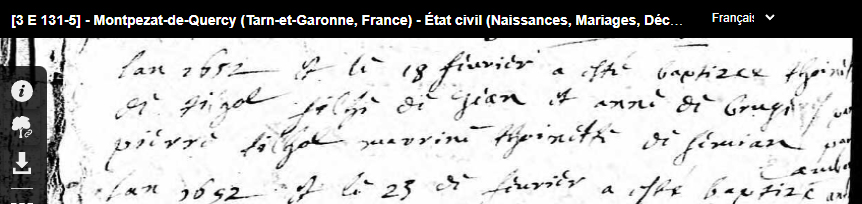 [3 E 131-5] - Montpezat-de-Quercy (Tarn-et-Garonne, France) - État civil (Naissances, Mariages, Déc...
Françai
lan 1652 et le 18 feuvrier a esté baptizee thoinet
de filhol filhe de Jean et anne de
pierre filhol marrine thoinette de
lan 1652 et le 23 de feuvrier a esté baptize